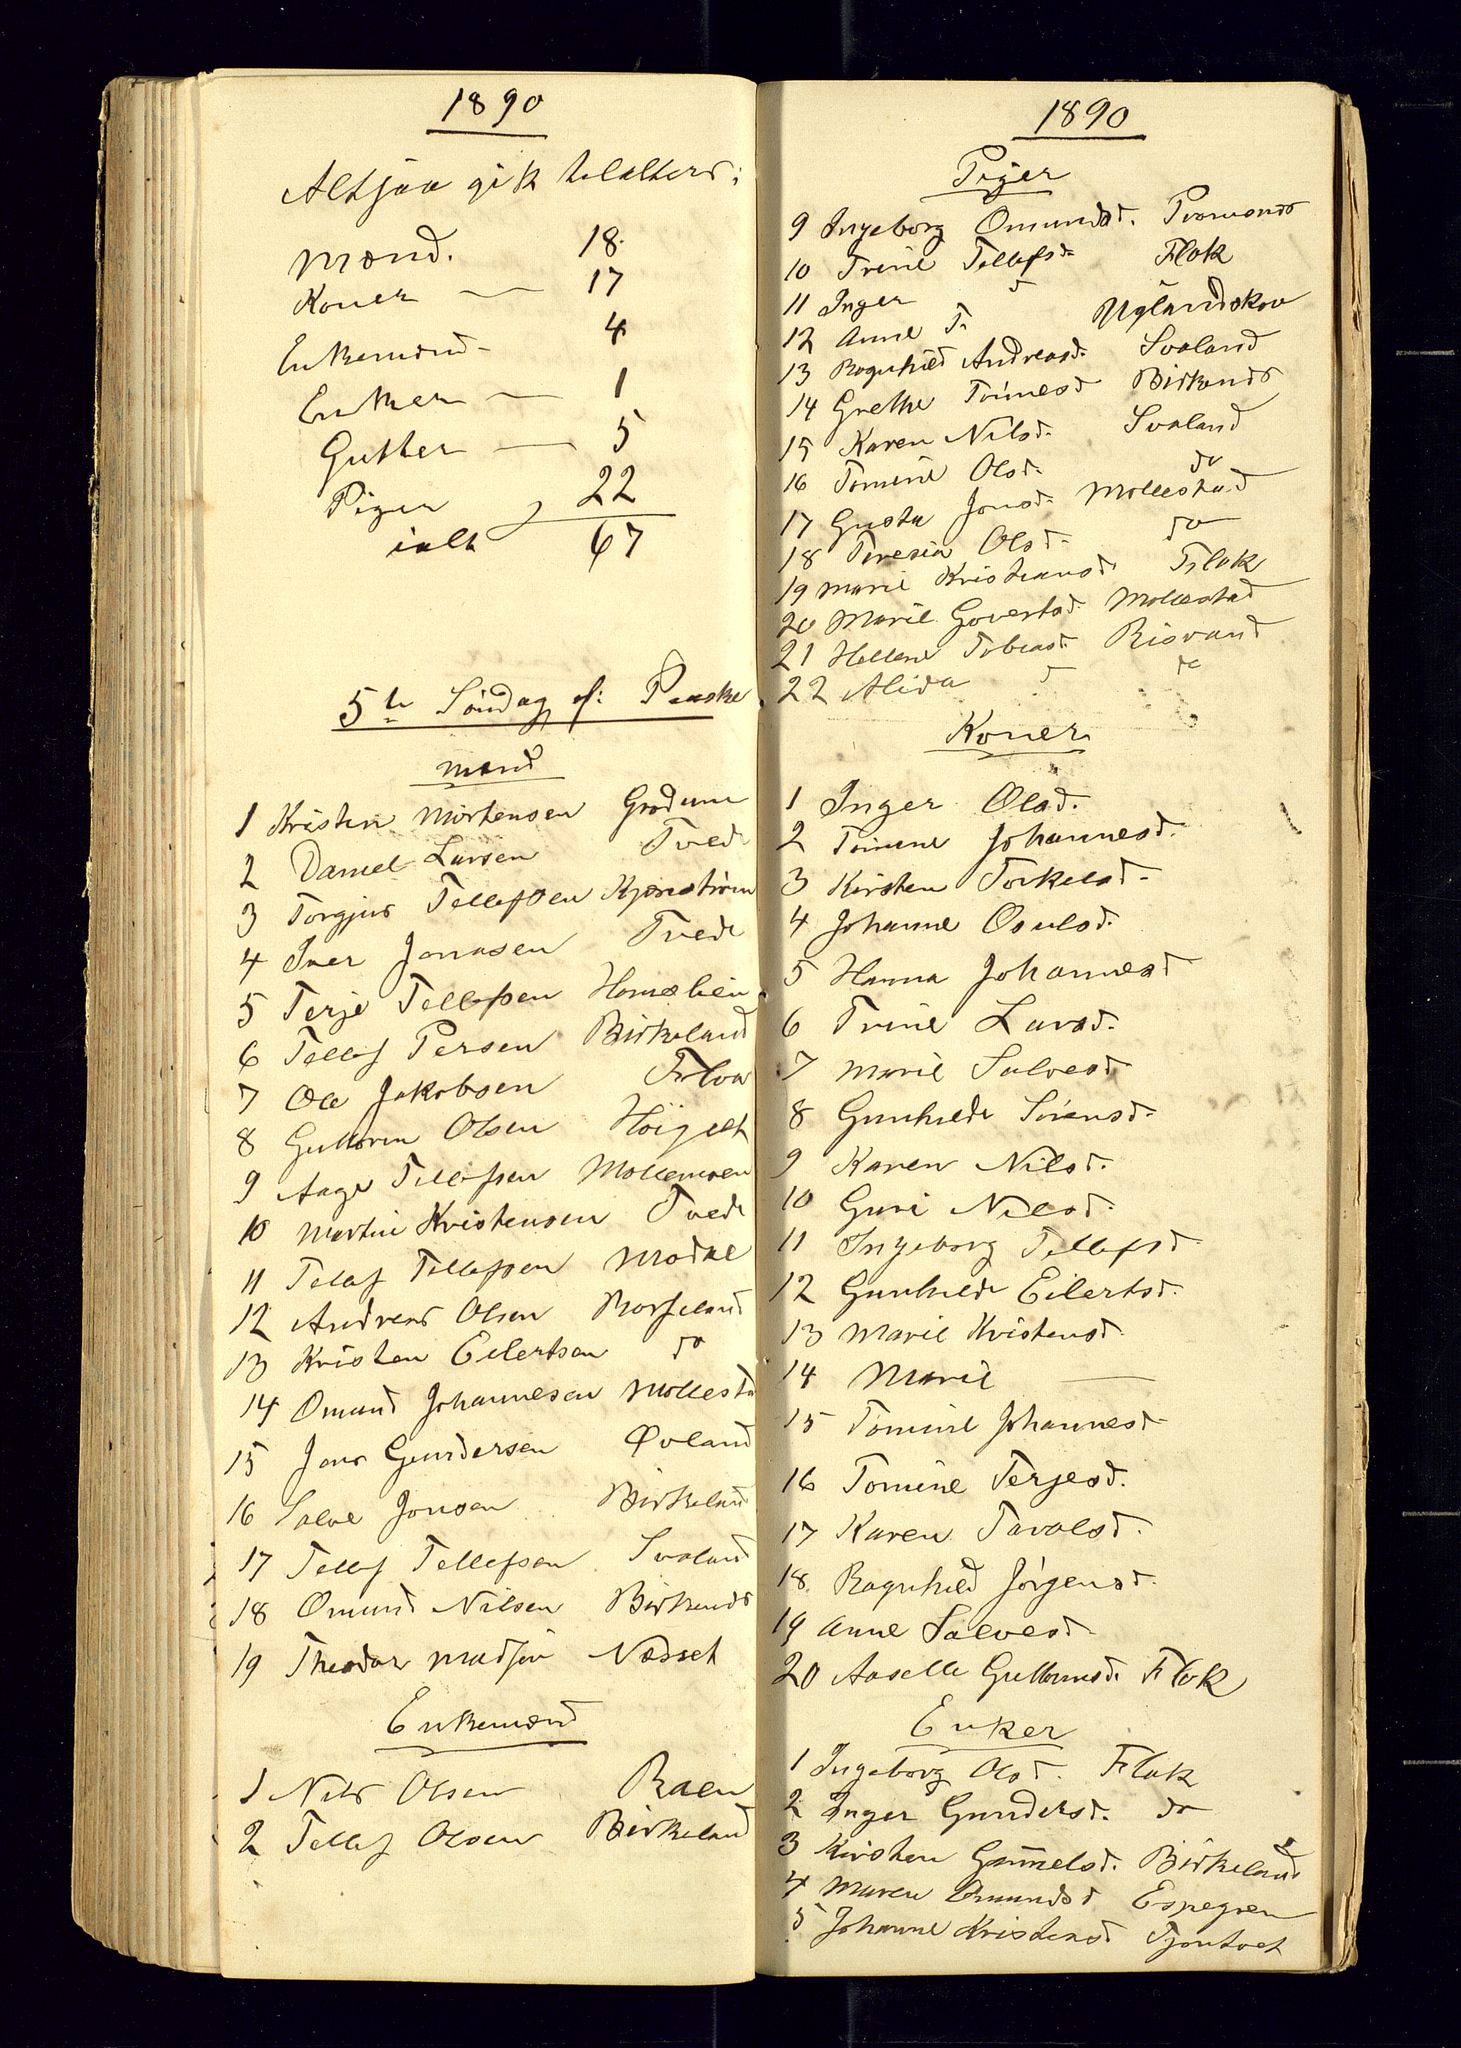 1890
Altsaa gik til alters:
Mænd. 18.
Koner — 17
Enkemænd - 4
Enker — 1
Gutter — 5
Piger 22
ialt 67
5te Søndag ef: Paaske
Mænd
1 Kristen Mortensen Grødum
2 Daniel Larsen Tvede
3 Torgjus Tellefsen
4 Iver Jonasen Tvede
5 Terje Tellefsen
6 Tellef Persen Birkeland
7 Ole Jakobsen
8 Guttorm Olsen
9 Aage Tellefsen Mollemoen
10 Martin Kristensen Tvede
11 Tellef Tellefsen Modal
12 Andreas Olsen
13 Kristen Eilertsen do
14 Omund Johannesen Mollesta
15 Jens Gundersen Øvland
16 Salve Jonsen Birkeland
17 Tellef Tellefsen Svaland
18 Omund Nilsen
19 Theodor Madsen Næsset
Enkemænd
1 Nils Olsen Raen
2 Tellef Olsen Birkeland
1890
Piger
9 Ingeborg Omundsd.
10 Trine Tellefsd. Flak
11 Inger d
12 Anne T. Uglandskov
13 Ragnhild Andreasd. Svaland
14 Grethe Tönnesd
15 Karen Nilsd. Svaland
16 Tomine Olsd. do
17 Gusta Jensd. Mollestad
18 Teresia Olsd. do
19 Marie Kristiansd Flak
20 Marie Govertsd. Mollestad
21 Hellene Tobiasd. Risvand
22 Alida d do
Koner
1 Inger Olsd.
2 Tomine Johannesd.
3 Kirsten Torkelsd.
4 Johanne Osulsd.
5 Hanna Johannesd
6 Trine Larsd.
7 Marie Salvesd
8 Gunhilde Sörensd.
9 Karen Nilsd.
10 Guri Nilsd.
11 Ingeborg Tellefsd
12 Gunhilde Eilertsd.
13 Marie Kristensd
14 Marie —
15 Tomine Johannesd
16 Tomine Terjesd.
17 Karen Tavalsd.
18 Ragnhild Jörgensd.
19 Anne Salvesd
20 Aaselle Guttormsd. Flak
Enker
1 Ingeborg Olsd. Flak
2 Inger Gundersd. do
3 Kirsten Gunnelsd. Birkeland
4 Maren Omundsd Espegren
5 Johanne Kristensd